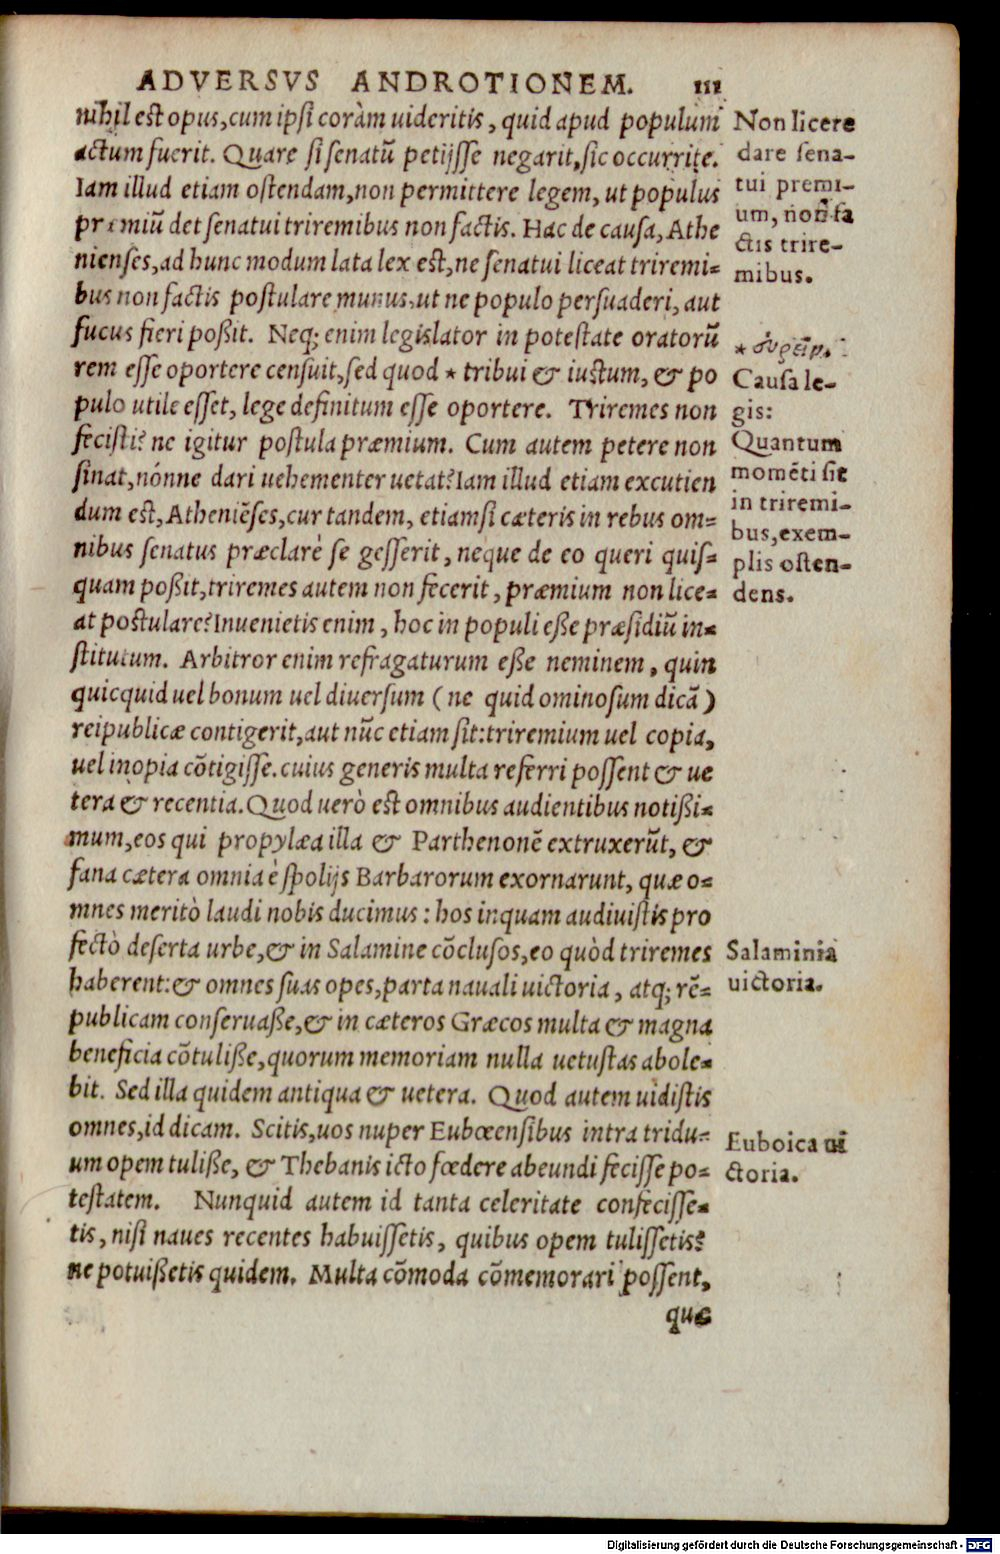 ADVERSVS ANDROTIONEM. 111
nihil est opus, cum ipsi coràm uideritis, quid apud populum
actum fuerit. Quare si senatũ petijsse negarit, sic occurrite.
Iam illud etiam ostendam, non permittere legem, ut populus
præmiũ det senatui triremibus non factis. Hac de causa, Athe
nienses, ad hunc modum lata lex est, ne senatui liceat triremi=
bus non factis postulare munus, ut ne populo persuaderi, aut
fucus fieri poßit. Neq; enim legislator in potestate oratorũ
rem esse oportere censuit, sed quod * tribui & iustum, & po
pulo utile esset, lege definitum esse oportere. Triremes non
fecisti? ne igitur postula præmium. Cum autem petere non
sinat, nónne dari uehementer uetat? Iam illud etiam excutien
dum est, Atheniẽses, cur tandem, etiamsi cæteris in rebus om=
nibus senatus præclarè se gesserit, neque de eo queri quis=
quam poßit, triremes autem non fecerit, præmium non lice=
at postulare? Inuenietis enim, hoc in populi eße præsidiũ in=
stitutum. Arbitror enim refragaturum eße neminem, quin
quicquid uel bonum uel diuersum (ne quid ominosum dicã)
reipublicæ contigerit, aut nũc etiam sit: triremium uel copia,
uel inopia cõtigisse. cuius generis multa referri possent & ue
tera & recentia. Quod uerò est omnibus audientibus notißi=
mum, eos qui propylæa illa & Parthenonẽ extruxerũt, &
fana cætera omnia è spolijs Barbarorum exornarunt, quæ o=
mnes meritò laudi nobis ducimus: hos inquam audiuistis pro
fectò deserta urbe, & in Salamine cõclusos, eo quòd triremes
haberent: & omnes suas opes, parta nauali uictoria, atq; rẽ=
publicam conseruaße, & in cæteros Græcos multa & magna
beneficia cõtuliße, quorum memoriam nulla uetustas abole=
bit. Sed illa quidem antiqua & uetera. Quod autem uidistis
omnes, id dicam. Scitis, uos nuper Eubœensibus intra tridu=
um opem tuliße, & Thebanis icto fœdere abeundi fecisse po=
testatem. Nunquid autem id tanta celeritate confecisse=
tis, nisi naues recentes habuissetis, quibus opem tulissetis?
ne potuißetis quidem. Multa cõmoda cõmemorari possent,
quæ
Non licere
dare sena-
tui premi-
um, non fa
ctis trire-
mibus.
*
Causa le-
gis:
Quantum
momẽti sit
in triremi-
bus, exem-
plis osten-
dens.
Salaminia
uictoria.
Euboica ui
ctoria.
Digitalisierung gefördert durch die Deutsche Forschungsgemeinschaft - DFG